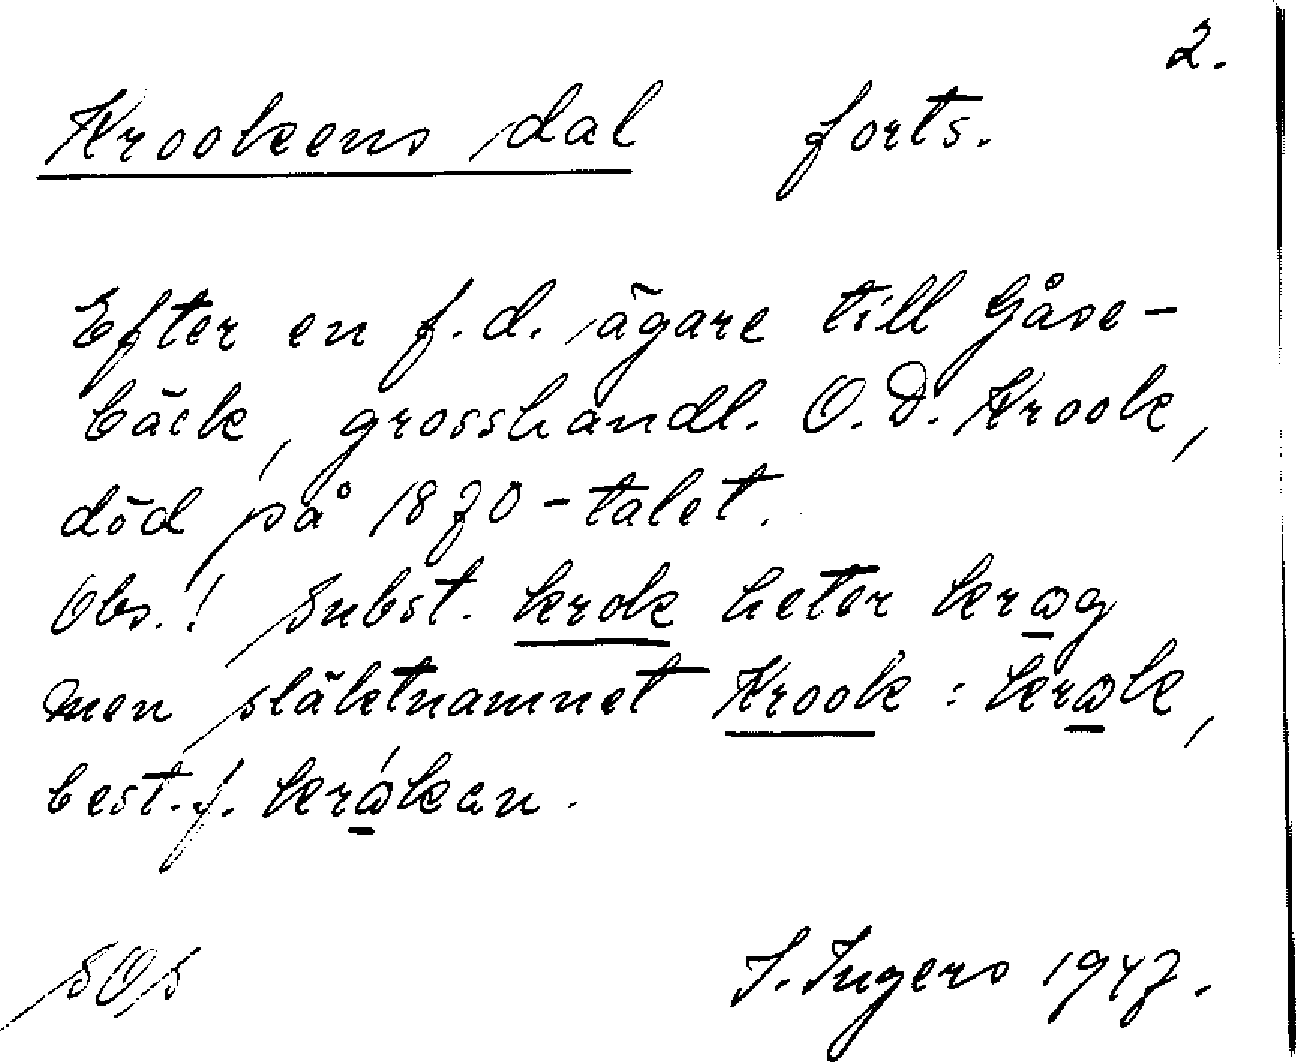 2.
Krookens dal forts.
Efter en f.d. ägare till Gåse-
bäck, grosshandl. O.D. Krook,
död på 1870-talet.
Obs.! Subst. krok heter krɷg
men släktnamnet Krook : krɷk,
best. f. krɷ́kan.
SOS I. Ingers 1947.